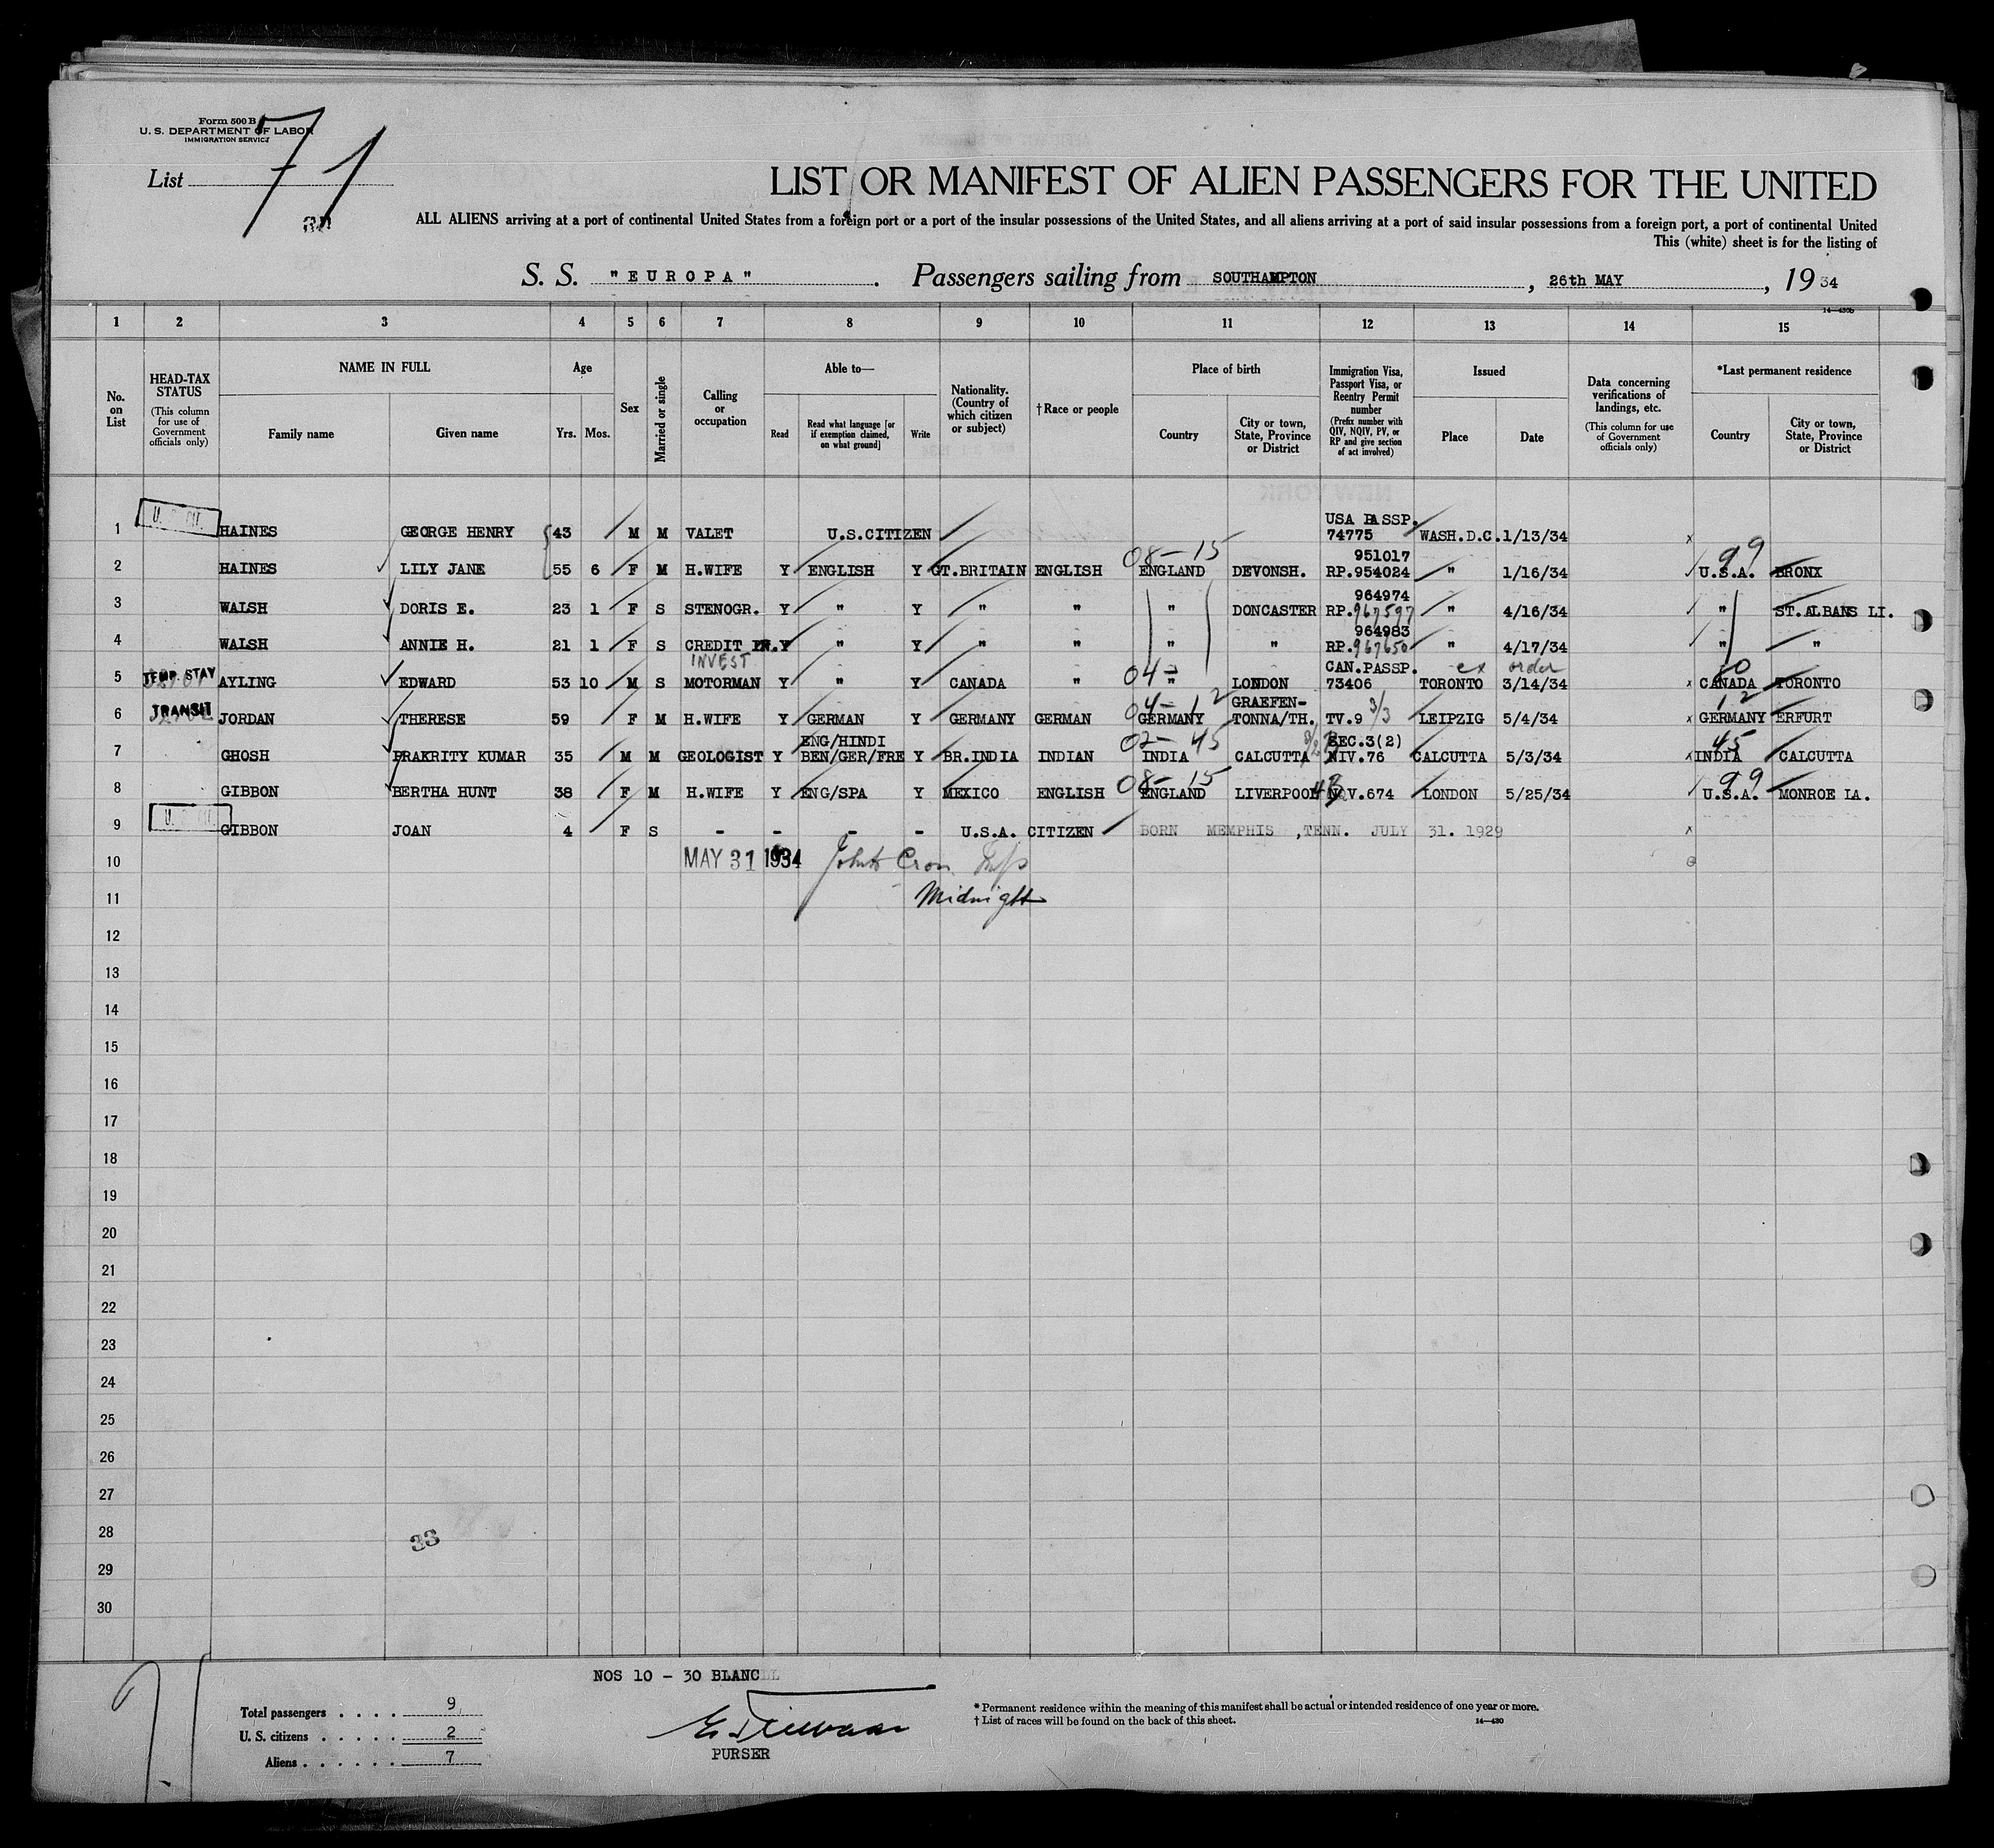 Form 500 B
U. S. DEPARTMENT OF LABOR
IMMIGRATION SERVICE
List 71
LIST OR MANIFEST OF ALIEN PASSENGERS FOR THE UNITED
ALL ALIENS arriving at a port of continental United States from a foreign port or a port of the insular possessions of the United States, and all aliens arriving at a port of said insular possessions from a foreign port, a port of continental United
This (white) sheet is for the listing of
S. S. "EUROPA". Passengers sailing from SOUTHAMPTON, 26th MAY, 1934
14-430b
1 2 3 4 5 6 7 8 9 10 11 12 13 14 15
No. on List
HEAD-TAX STATUS (This column for use of Government officials only)
NAME IN FULL Family name Given name
Age Yrs. Mos.
Sex
Married or single
Calling or occupation
Able to— Read Read what language [or if exemption claimed, on what ground] Write
Nationality. (Country of which citizen or subject)
†Race or people
Place of birth Country City or town, State, Province or District
Immigration Visa, Passport Visa, or Reentry Permit number (Prefix number with QIV, NQIV, PV, or RP and give section of act involved)
Issued Place Date
Data concerning verifications of landings, etc. (This column for use of Government officials only)
*Last permanent residence Country City or town, State, Province or District
USA PASSP.
1 HAINES GEORGE HENRY 43 M M VALET U.S.CITIZEN 74775 WASH.D.C. 1/13/34 x
08-15 951017 99
2 HAINES LILY JANE 55 6 F M H.WIFE Y ENGLISH Y GT.BRITAIN ENGLISH ENGLAND DEVONSH. RP.954024 " 1/16/34 U.S.A. BRONX
964974
3 WALSH DORIS E. 23 1 F S STENOGR. Y " Y " " " DONCASTER RP.967597 " 4/16/34 " ST.ALBANS LI.
964983
4 WALSH ANNIE H. 21 1 F S CREDIT IN.Y " Y " " " " RP.967650 " 4/17/34 " "
INVEST 04- CAN.PASSP. ex order
5 TEMP. STAY AYLING EDWARD 53 10 M S MOTORMAN Y " Y CANADA " " LONDON 73406 TORONTO 3/14/34 x CANADA TORONTO
04-12 GRAEFEN- 3/3 12
6 TRANSIT JORDAN THERESE 59 F M H.WIFE Y GERMAN Y GERMANY GERMAN GERMANY TONNA/TH. TV.9 LEIPZIG 5/4/34 x GERMANY ERFURT
ENG/HINDI 02-45 SEC.3(2) 45
7 GHOSH PRAKRITY KUMAR 35 M M GEOLOGIST Y BEN/GER/FRE Y BR.INDIA INDIAN INDIA CALCUTTA NIV.76 CALCUTTA 5/3/34 x INDIA CALCUTTA
08-15 99
8 GIBBON BERTHA HUNT 38 F M H.WIFE Y ENG/SPA Y MEXICO ENGLISH ENGLAND LIVERPOOL NQV.674 LONDON 5/25/34 U.S.A. MONROE LA.
9 GIBBON JOAN 4 F S - - - - U.S.A. CITIZEN BORN MEMPHIS ,TENN. JULY 31. 1929 x
10 MAY 31 1934
11 Midnight
12
13
14
15
16
17
18
19
20
21
22
23
24
25
26
27
28 33
29
30
NOS 10 - 30 BLANC
Total passengers . . . . 9
U. S. citizens . . . . . 2
Aliens . . . . . . 7
PURSER
* Permanent residence within the meaning of this manifest shall be actual or intended residence of one year or more.
† List of races will be found on the back of this sheet.
14-430